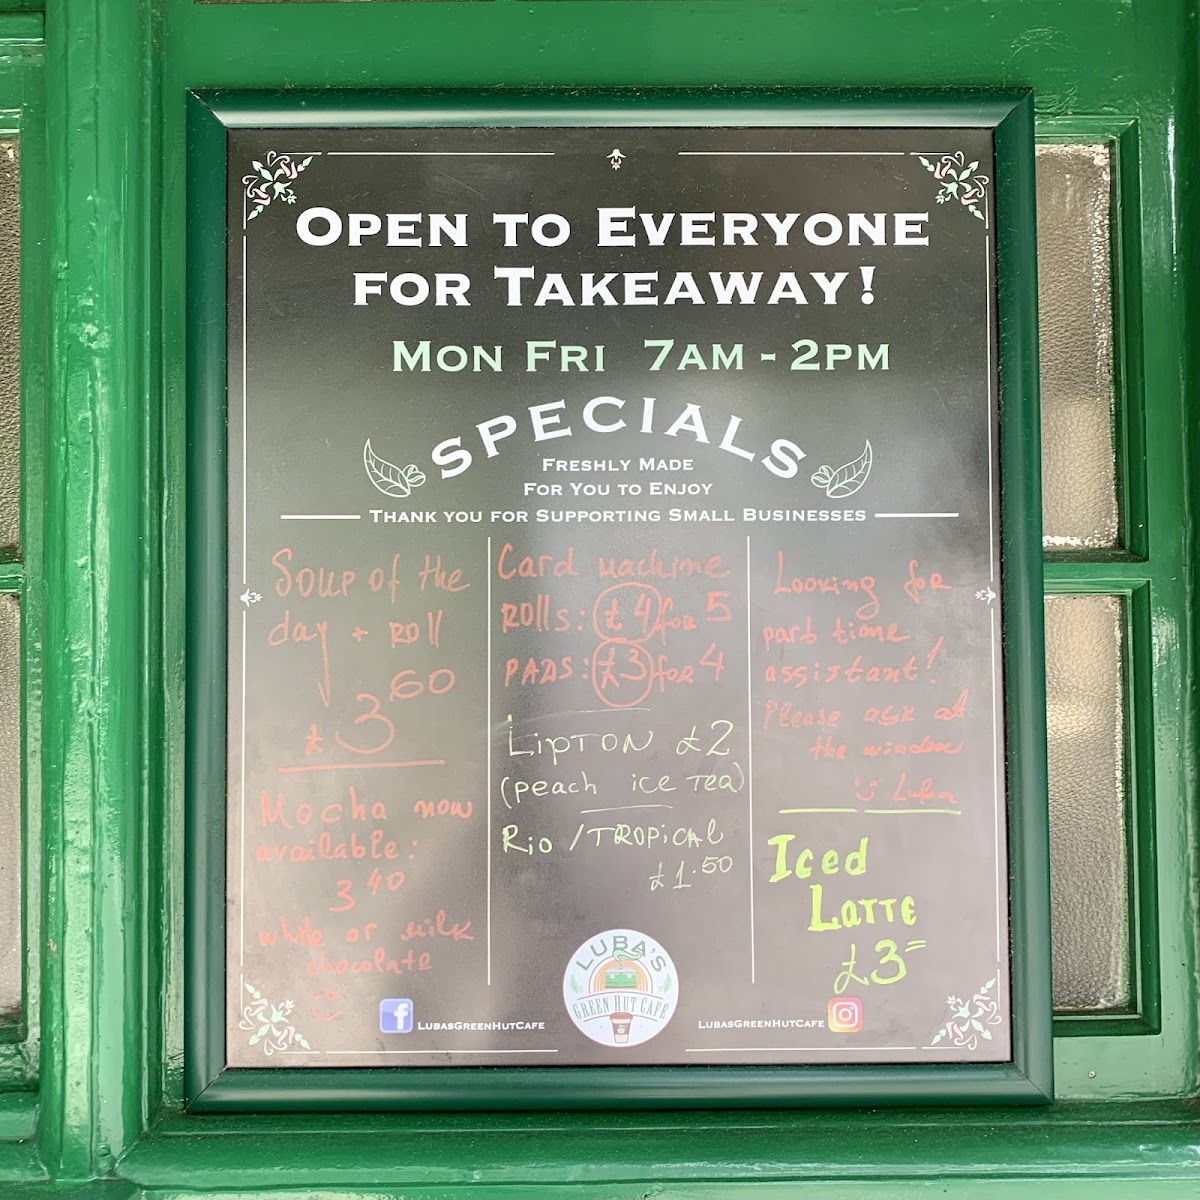 OPEN TO EVERYONE
FOR TAKEAWAY!
MON FRI 7AM - 2PM
SPECIALS
FRESHLY MADE
FOR YOU TO ENJOY
THANK YOU FOR SUPPORTING SMALL BUSINESSES
Soup of the
day + Roll
£3.60
Mocha now
available:
3.40
white or milk
chocolate
Card machine
ROLLS: £4 for 5
PADS: £3 for 4
LIPTON £2
(peach ice Tea)
Rio / TROPiCAl
£1.50
Looking for
part time
assistant!
Please ask at
the window
Luba
Iced
LaTTE
£3=
LUBA'S
GREEN HUT CAFE
LUBASGREENHUTCAFE
LUBASGREENHUTCAFE